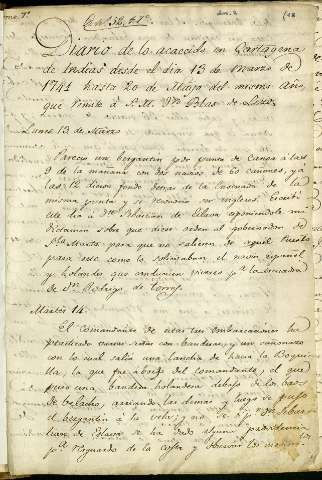 Diario de lo acaecido en Cartagena
de Indias desde el dia 13 de Marzo de
1741 hasta 20 de Mayo del mismo Año,
que remite á S.M. Dn Blas de Lezo.
Lunes 13 de Marzo
Pareció un bergantin por punta de Canoa a las
9 de la mañana con dos navios de 60 cañones, y a
las 12 dieron fondo detras de la
misma punta y se ser ingleses. Escribí
este dia á Dn Sebastian de Eslava exponiendole mi
dictamen sobre que diese orden al gobernador de
Sta Marta para que no saliesen de aquel Puerto
para este como lo solicitaban el navio español
y holandes que conducian viveres pa la esquadra
de Dn Rodrigo de Torres
Martes 14.
El Comandante de estas tres embarcaciones ha
practicado varias señas con banderas, y un cañonazo
con lo cual salio una lancha de hacia la Boqui
lla, la que fue á bordo del comandante, el que
puso una bandera holandesa debajo de los baos
de belacho, arriando las demas y luego se puso
el bergantin á la vela; y no se si por Dn Sebas
tian de Eslava se ha dado alguna providencia
pa resguardo de la costa y observar los